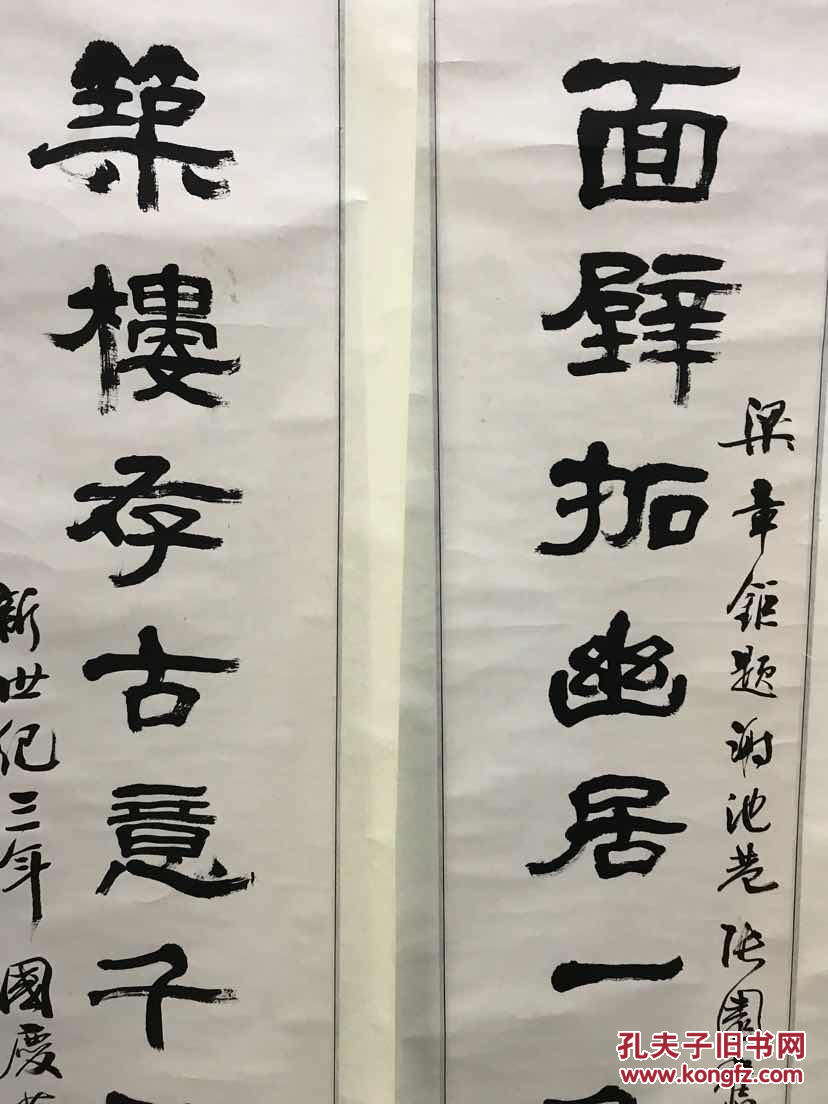 面壁拓幽居一
梁章鉅題謝池巷張園舊
築樓存古意子
新世纪三年國慶
孔夫子旧书网
www.kongfz.com